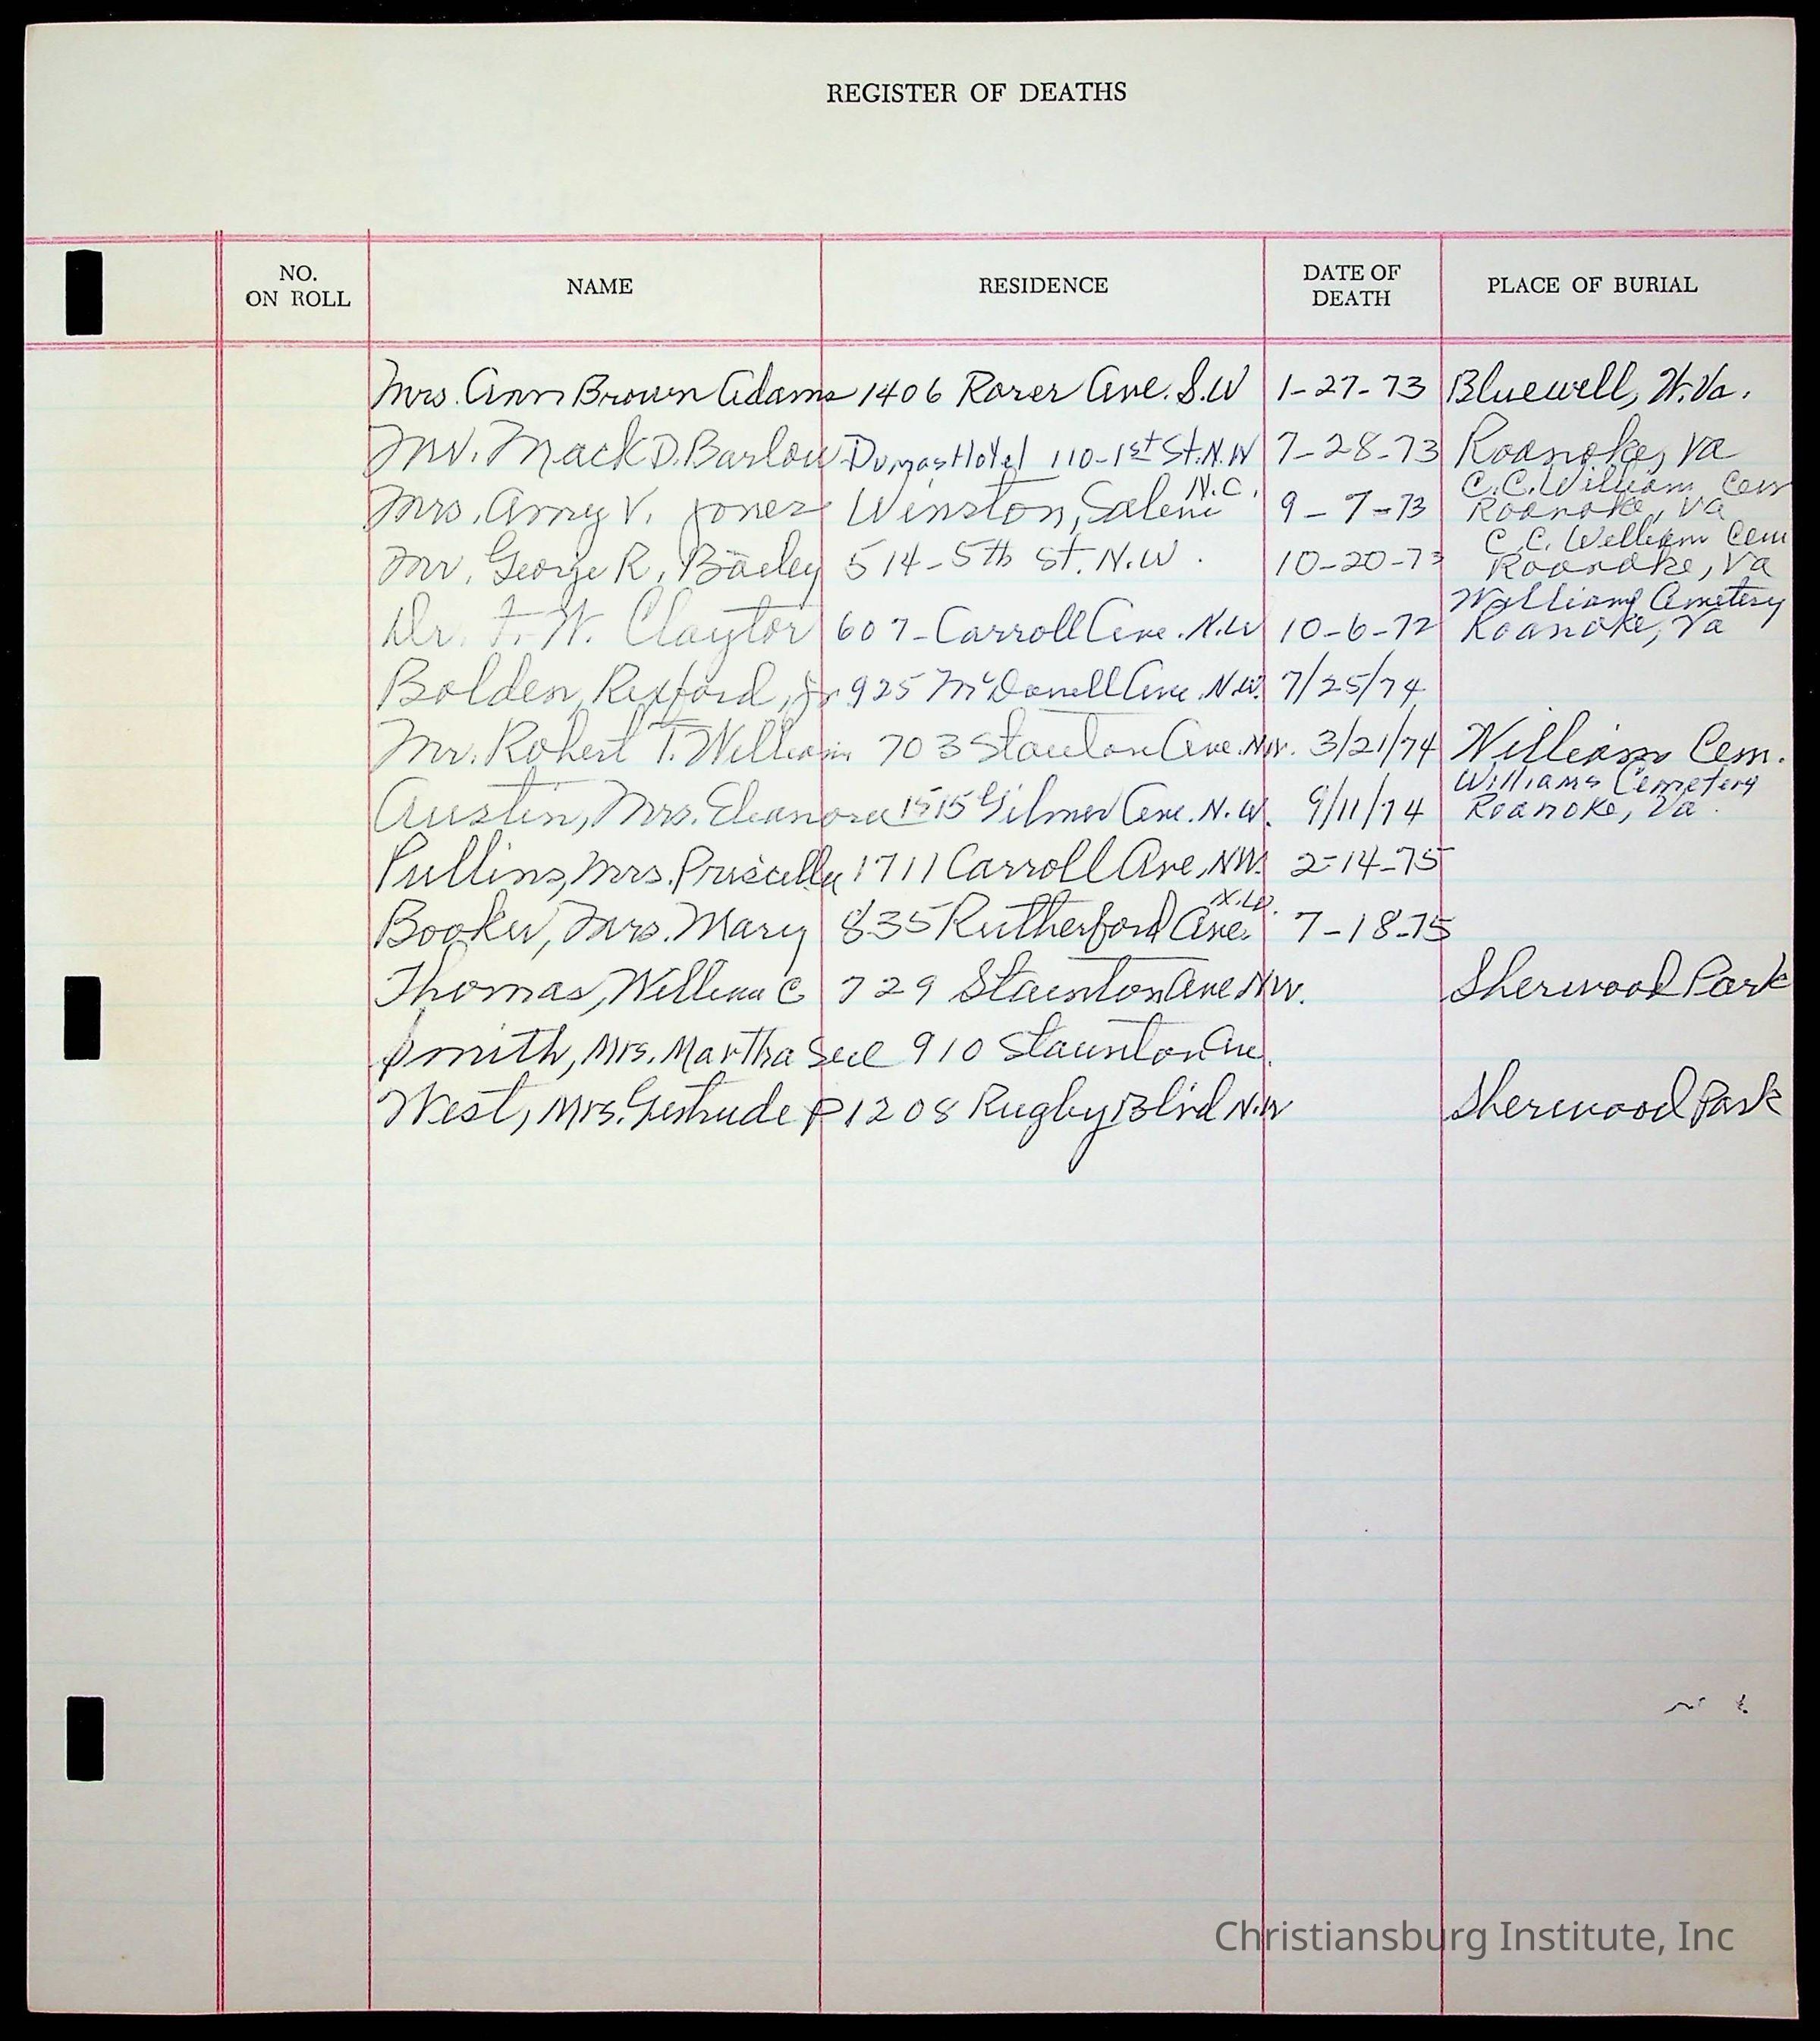 REGISTER OF DEATHS
NO. ON ROLL NAME RESIDENCE DATE OF DEATH PLACE OF BURIAL
Mrs. Ann Brown Adams 1406 Rorer Ave. S.W 1-27-73 Bluewell, W.Va.
Mr. Mack D. Barlow Dumas Hotel 110-1st St. N.W 7-28-73 Roanoke, Va
Mrs. Amy V. Jones Winston, Salem N.C. 9-7-73 C.C. William Cem Roanoke, Va
Mr. George R. Bailey 514-5th St. N.W. 10-20-73 C.C. William Cem Roanoke, Va
Dr. F. W. Claytor 607-Carroll Ave. N.W 10-6-72 Williams Cemetery Roanoke, Va
Bolden, Rexford, Jr 925 McDowell Ave. N.W. 7/25/74
Mr. Robert T. William 703 Staunton Ave. N.W. 3/21/74 William Cem.
Austin, Mrs. Eleanora 1515 Gilmer Ave. N.W. 9/11/74 Williams Cemetery Roanoke, Va.
Pullins, Mrs. Priscilla 1711 Carroll Ave, N.W. 2-14-75
Booker, Mrs. Mary 835 Rutherford Ave. N.W. 7-18-75
Thomas, William C 729 Staunton Ave N.W. Sherwood Park
Smith, Mrs. Martha Sue 910 Staunton Ave.
West, Mrs. Gertrude P 1208 Rugby Blvd N.W Sherwood Park
Christiansburg Institute, Inc